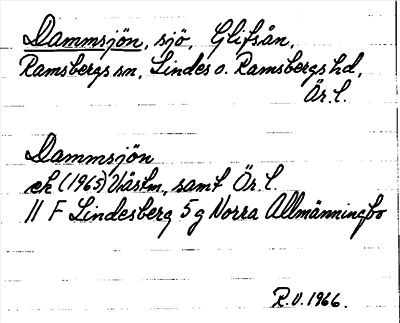 Dammsjön, sjö, Glifsån,
Ramsbergs sn, Lindes o. Ramsbergs hd,
Ör. l.
Dammsjön
ek (1965) Västm., samt Ör. l.
11 F Lindesberg 5g Norra Allmänningbo
R.V. 1966.